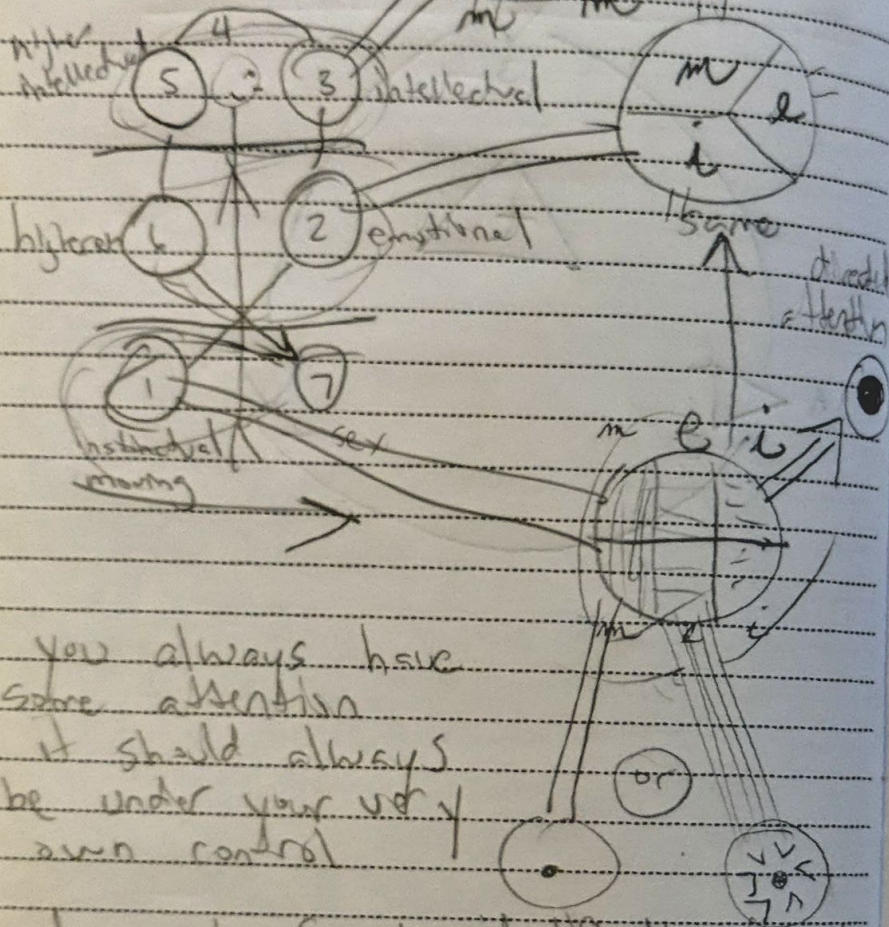 m m
4
higher
intellectual
5 3 intellectual
m
e
i
6 2 emotional
same
directed
attention
1 7
instinctual
sex
moving
m e i
m e i
you always have
some attention
it should always
be under your very
own control
or